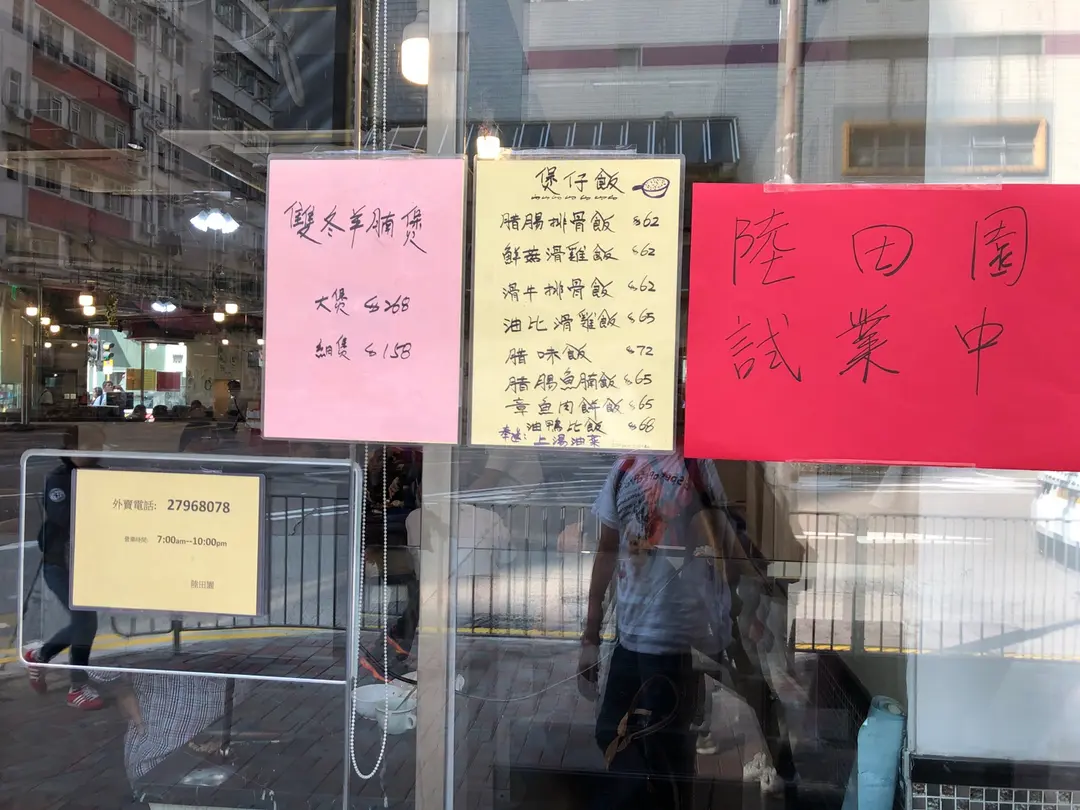 雙冬羊腩煲
大煲 $268
細煲 $158
煲仔飯
腊腸排骨飯 $62
鮮菇滑雞飯 $62
滑牛排骨飯 $62
油比滑雞飯 $65
腊味飯 $72
腊腸魚腩飯 $65
章魚肉餅飯 $65
油鴨比飯 $68
奉送：上湯油菜
陸田園
試業中
外賣電話: 27968078
營業時間: 7:00am--10:00pm
陸田園